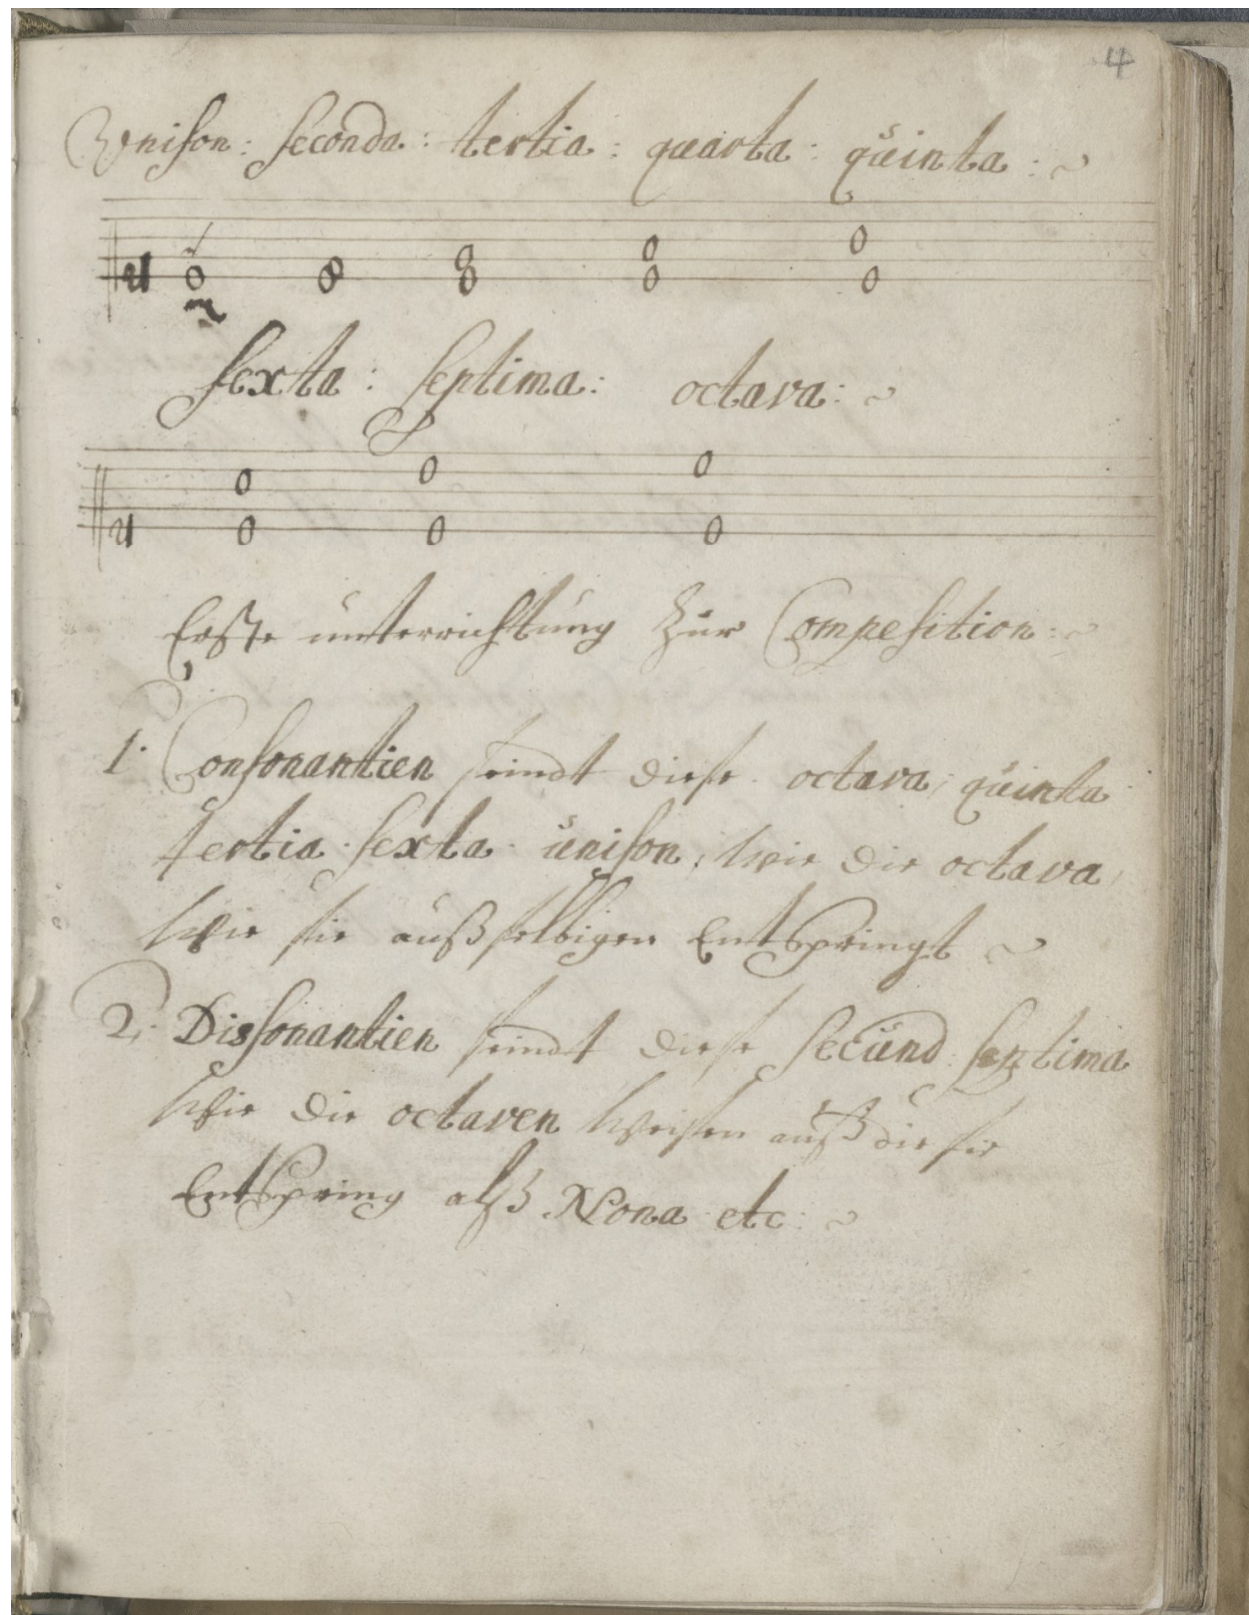 4
Unison: seconda: tertia: quarta: quinta:
sexta: septima: octava:
Erste unterrichtung zur Compesition:
1. Consonantien seindt diese octava, quinta
tertia. sexta. unison, wie die octava,
wie sie außselbigen Entspringt
2. Dissonantien seindt diese secund septima
wie die octaven weisen auß die sie
Entspring alß Nona etc: